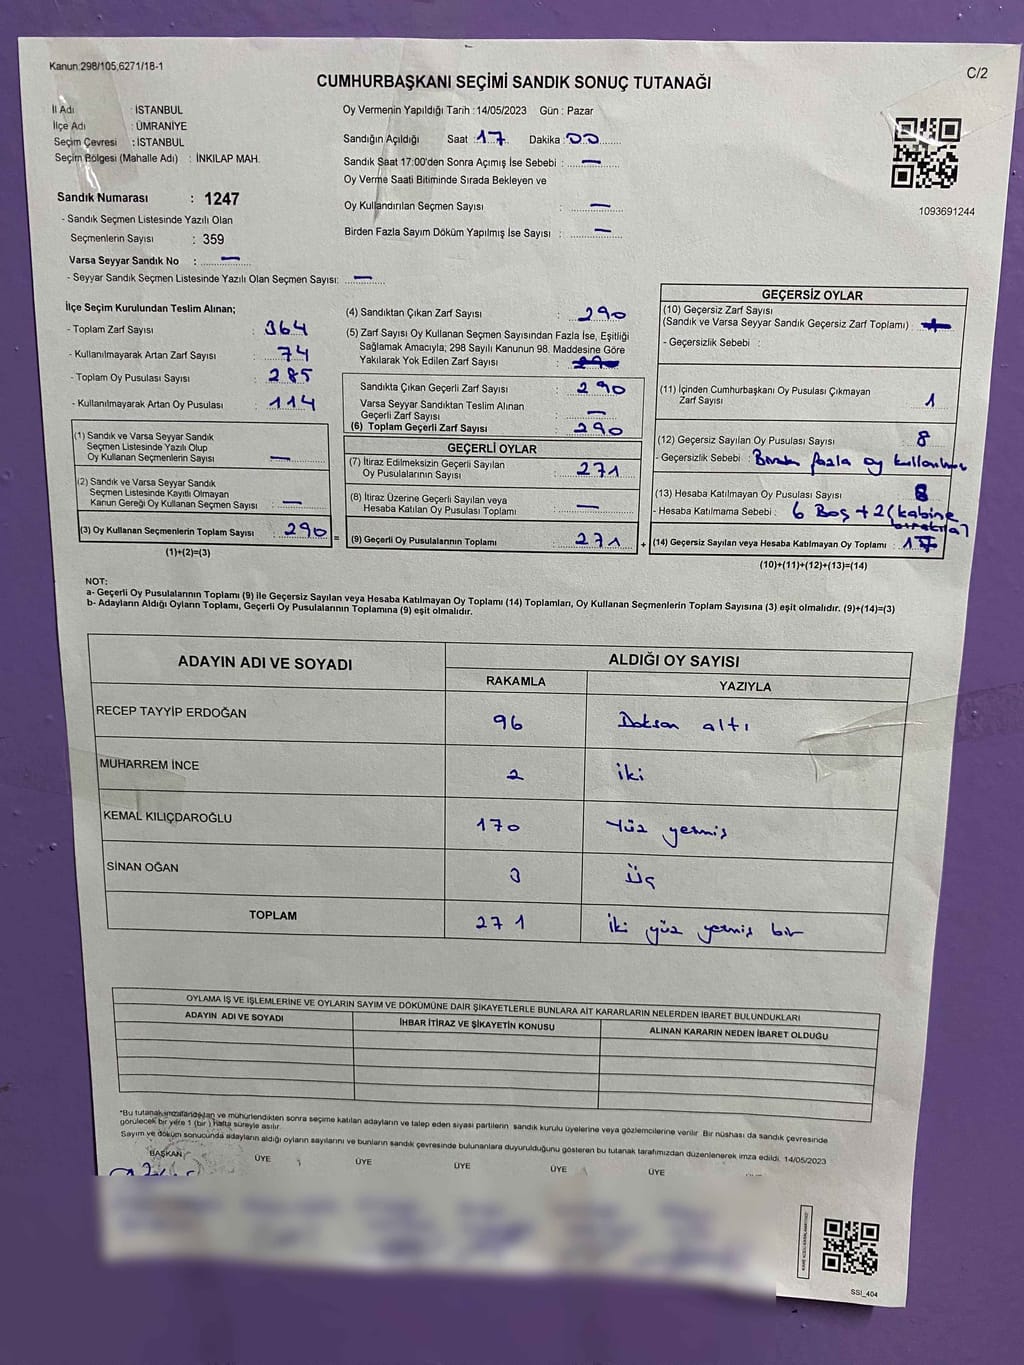 Kanun:298/105,6271/18-1
C/2
CUMHURBAŞKANI SEÇİMİ SANDIK SONUÇ TUTANAĞI
İl Adı : İSTANBUL
İlçe Adı : ÜMRANİYE
Seçim Çevresi : İSTANBUL
Seçim Bölgesi (Mahalle Adı) : İNKILAP MAH.
Oy Vermenin Yapıldığı Tarih : 14/05/2023 Gün : Pazar
Sandığın Açıldığı Saat : 17 Dakika : 00
Sandık Saat 17:00'den Sonra Açımış İse Sebebi : —
Oy Verme Saati Bitiminde Sırada Bekleyen ve
Oy Kullandırılan Seçmen Sayısı : —
Birden Fazla Sayım Döküm Yapılmış İse Sayısı : —
1093691244
Sandık Numarası : 1247
- Sandık Seçmen Listesinde Yazılı Olan
Seçmenlerin Sayısı : 359
Varsa Seyyar Sandık No : —
- Seyyar Sandık Seçmen Listesinde Yazılı Olan Seçmen Sayısı: —
İlçe Seçim Kurulundan Teslim Alınan;
- Toplam Zarf Sayısı : 364
- Kullanılmayarak Artan Zarf Sayısı : 74
- Toplam Oy Pusulası Sayısı : 285
- Kullanılmayarak Artan Oy Pusulası : 114
(1) Sandık ve Varsa Seyyar Sandık
Seçmen Listesinde Yazılı Olup
Oy Kullanan Seçmenlerin Sayısı : —
(2) Sandık ve Varsa Seyyar Sandık
Seçmen Listesinde Kayıtlı Olmayan
Kanun Gereği Oy Kullanan Seçmen Sayısı : —
(3) Oy Kullanan Seçmenlerin Toplam Sayısı : 290
(1)+(2)=(3)
(4) Sandıktan Çıkan Zarf Sayısı : 290
(5) Zarf Sayısı Oy Kullanan Seçmen Sayısından Fazla İse, Eşitliği
Sağlamak Amacıyla; 298 Sayılı Kanunun 98. Maddesine Göre
Yakılarak Yok Edilen Zarf Sayısı :
Sandıkta Çıkan Geçerli Zarf Sayısı : 290
Varsa Seyyar Sandıktan Teslim Alınan
Geçerli Zarf Sayısı : —
(6) Toplam Geçerli Zarf Sayısı : 290
GEÇERLİ OYLAR
(7) İtiraz Edilmeksizin Geçerli Sayılan
Oy Pusulalarının Sayısı : 271
(8) İtiraz Üzerine Geçerli Sayılan veya
Hesaba Katılan Oy Pusulası Toplamı : —
= (9) Geçerli Oy Pusulalarının Toplamı : 271
GEÇERSİZ OYLAR
(10) Geçersiz Zarf Sayısı
(Sandık ve Varsa Seyyar Sandık Geçersiz Zarf Toplamı) :
- Geçersizlik Sebebi :
(11) İçinden Cumhurbaşkanı Oy Pusulası Çıkmayan
Zarf Sayısı : 1
(12) Geçersiz Sayılan Oy Pusulası Sayısı : 8
- Geçersizlik Sebebi : fazla oy
(13) Hesaba Katılmayan Oy Pusulası Sayısı : 8
- Hesaba Katılmama Sebebi : 6 Boş + 2 (kabine
+ (14) Geçersiz Sayılan veya Hesaba Katılmayan Oy Toplamı :
(10)+(11)+(12)+(13)=(14)
NOT:
a- Geçerli Oy Pusulalarının Toplamı (9) ile Geçersiz Sayılan veya Hesaba Katılmayan Oy Toplamı (14) Toplamları, Oy Kullanan Seçmenlerin Toplam Sayısına (3) eşit olmalıdır. (9)+(14)=(3)
b- Adayların Aldığı Oyların Toplamı, Geçerli Oy Pusulalarının Toplamına (9) eşit olmalıdır.
ADAYIN ADI VE SOYADI
ALDIĞI OY SAYISI
RAKAMLA YAZIYLA
RECEP TAYYİP ERDOĞAN 96 Doksan altı
MUHARREM İNCE 2 iki
KEMAL KILIÇDAROĞLU 170 Yüz yetmiş
SİNAN OĞAN 3 Üç
TOPLAM 271 iki yüz yetmiş bir
OYLAMA İŞ VE İŞLEMLERİNE VE OYLARIN SAYIM VE DÖKÜMÜNE DAİR ŞİKAYETLERLE BUNLARA AİT KARARLARIN NELERDEN İBARET BULUNDUKLARI
ADAYIN ADI VE SOYADI
İHBAR İTİRAZ VE ŞİKAYETİN KONUSU
ALINAN KARARIN NEDEN İBARET OLDUĞU
*Bu tutanak imzalandıktan ve mühürlendikten sonra seçime katılan adayların ve talep eden siyasi partilerin sandık kurulu üyelerine veya gözlemcilerine verilir. Bir nüshası da sandık çevresinde
görülecek bir yere 1 (bir) hafta süreyle asılır.
Sayım ve döküm sonucunda adayların aldığı oyların sayılarını ve bunların sandık çevresinde bulunanlara duyurulduğunu gösteren bu tutanak tarafımızdan düzenlenerek imza edildi. 14/05/2023
BAŞKAN ÜYE ÜYE ÜYE ÜYE ÜYE
SSI_404